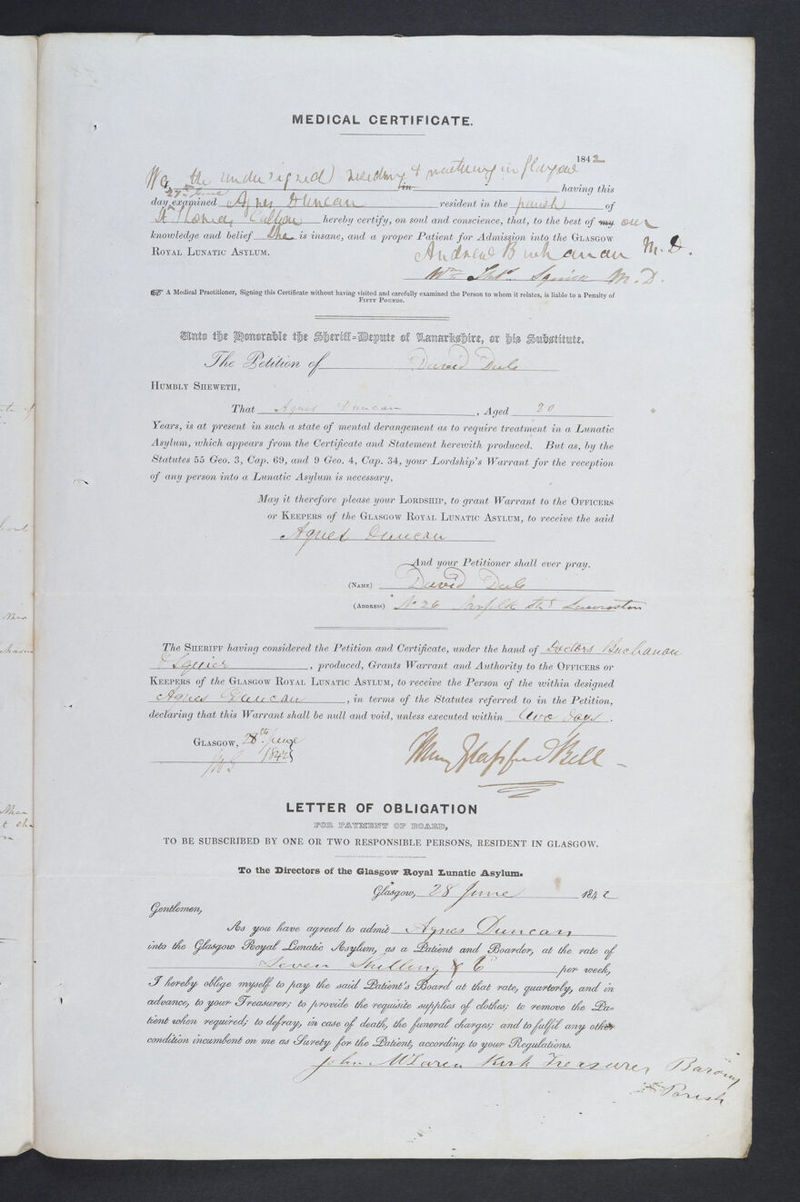 MEDICAL CERTIFICATE.
1842
We the undersigned residing & practising in Glasgow
in having this
27th June
day examined Agnes Duncan resident in the parish of
St Thomas Calton hereby certify, on soul and conscience, that, to the best of my our
knowledge and belief She is insane, and a proper Patient for Admission into the GLASGOW
ROYAL LUNATIC ASYLUM. Andrew Buchanan M.D.
Wm Squier M.D.
A Medical Practitioner, Signing this Certificate without having visited and carefully examined the Person to whom it relates, is liable to a Penalty of
FIFTY POUNDS.
Unto the Honorable the Sheriff=Depute of Lanarkshire, or his Substitute.
The Petition of David Dale
HUMBLY SHEWETH,
That Agnes Duncan, Aged 20
Years, is at present in such a state of mental derangement as to require treatment in a Lunatic
Asylum, which appears from the Certificate and Statement herewith produced. But as, by the
Statutes 55 Geo. 3, Cap. 69, and 9 Geo. 4, Cap. 34, your Lordship's Warrant for the reception
of any person into a Lunatic Asylum is necessary,
May it therefore please your LORDSHIP, to grant Warrant to the OFFICERS
or KEEPERS of the GLASGOW ROYAL LUNATIC ASYLUM, to receive the said
Agnes Duncan
And your Petitioner shall ever pray.
(NAME) David Dale
(ADDRESS) No 26 Norfolk St. Laurieston
The SHERIFF having considered the Petition and Certificate, under the hand of Doctors Buchanan
& Squier, produced, Grants Warrant and Authority to the OFFICERS or
KEEPERS of the GLASGOW ROYAL LUNATIC ASYLUM, to receive the Person of the within designed
Agnes Duncan, in terms of the Statutes referred to in the Petition,
declaring that this Warrant shall be null and void, unless executed within two days.
GLASGOW, 28th June
1842
Henry Glassford Bell
LETTER OF OBLIGATION
FOR PAYMENT OF BOARD,
TO BE SUBSCRIBED BY ONE OR TWO RESPONSIBLE PERSONS, RESIDENT IN GLASGOW.
To the Directors of the Glasgow Royal Lunatic Asylum.
Glasgow, 28 June 1842
Gentlemen,
As you have agreed to admit Agnes Duncan
into the Glasgow Royal Lunatic Asylum, as a Patient and Boarder, at the rate of
Seven Shilling & 6 per week,
I hereby oblige myself to pay the said Patient's Board at that rate, quarterly, and in
advance, to your Treasurer; to provide the requisite supplies of clothes; to remove the Pa=
tient when required; to defray, in case of death, the funeral charges; and to fulfil any other
condition incumbent on me as Surety for the Patient, according to your Regulations.
John McLaren Kirk Treasurer Barony
Parish